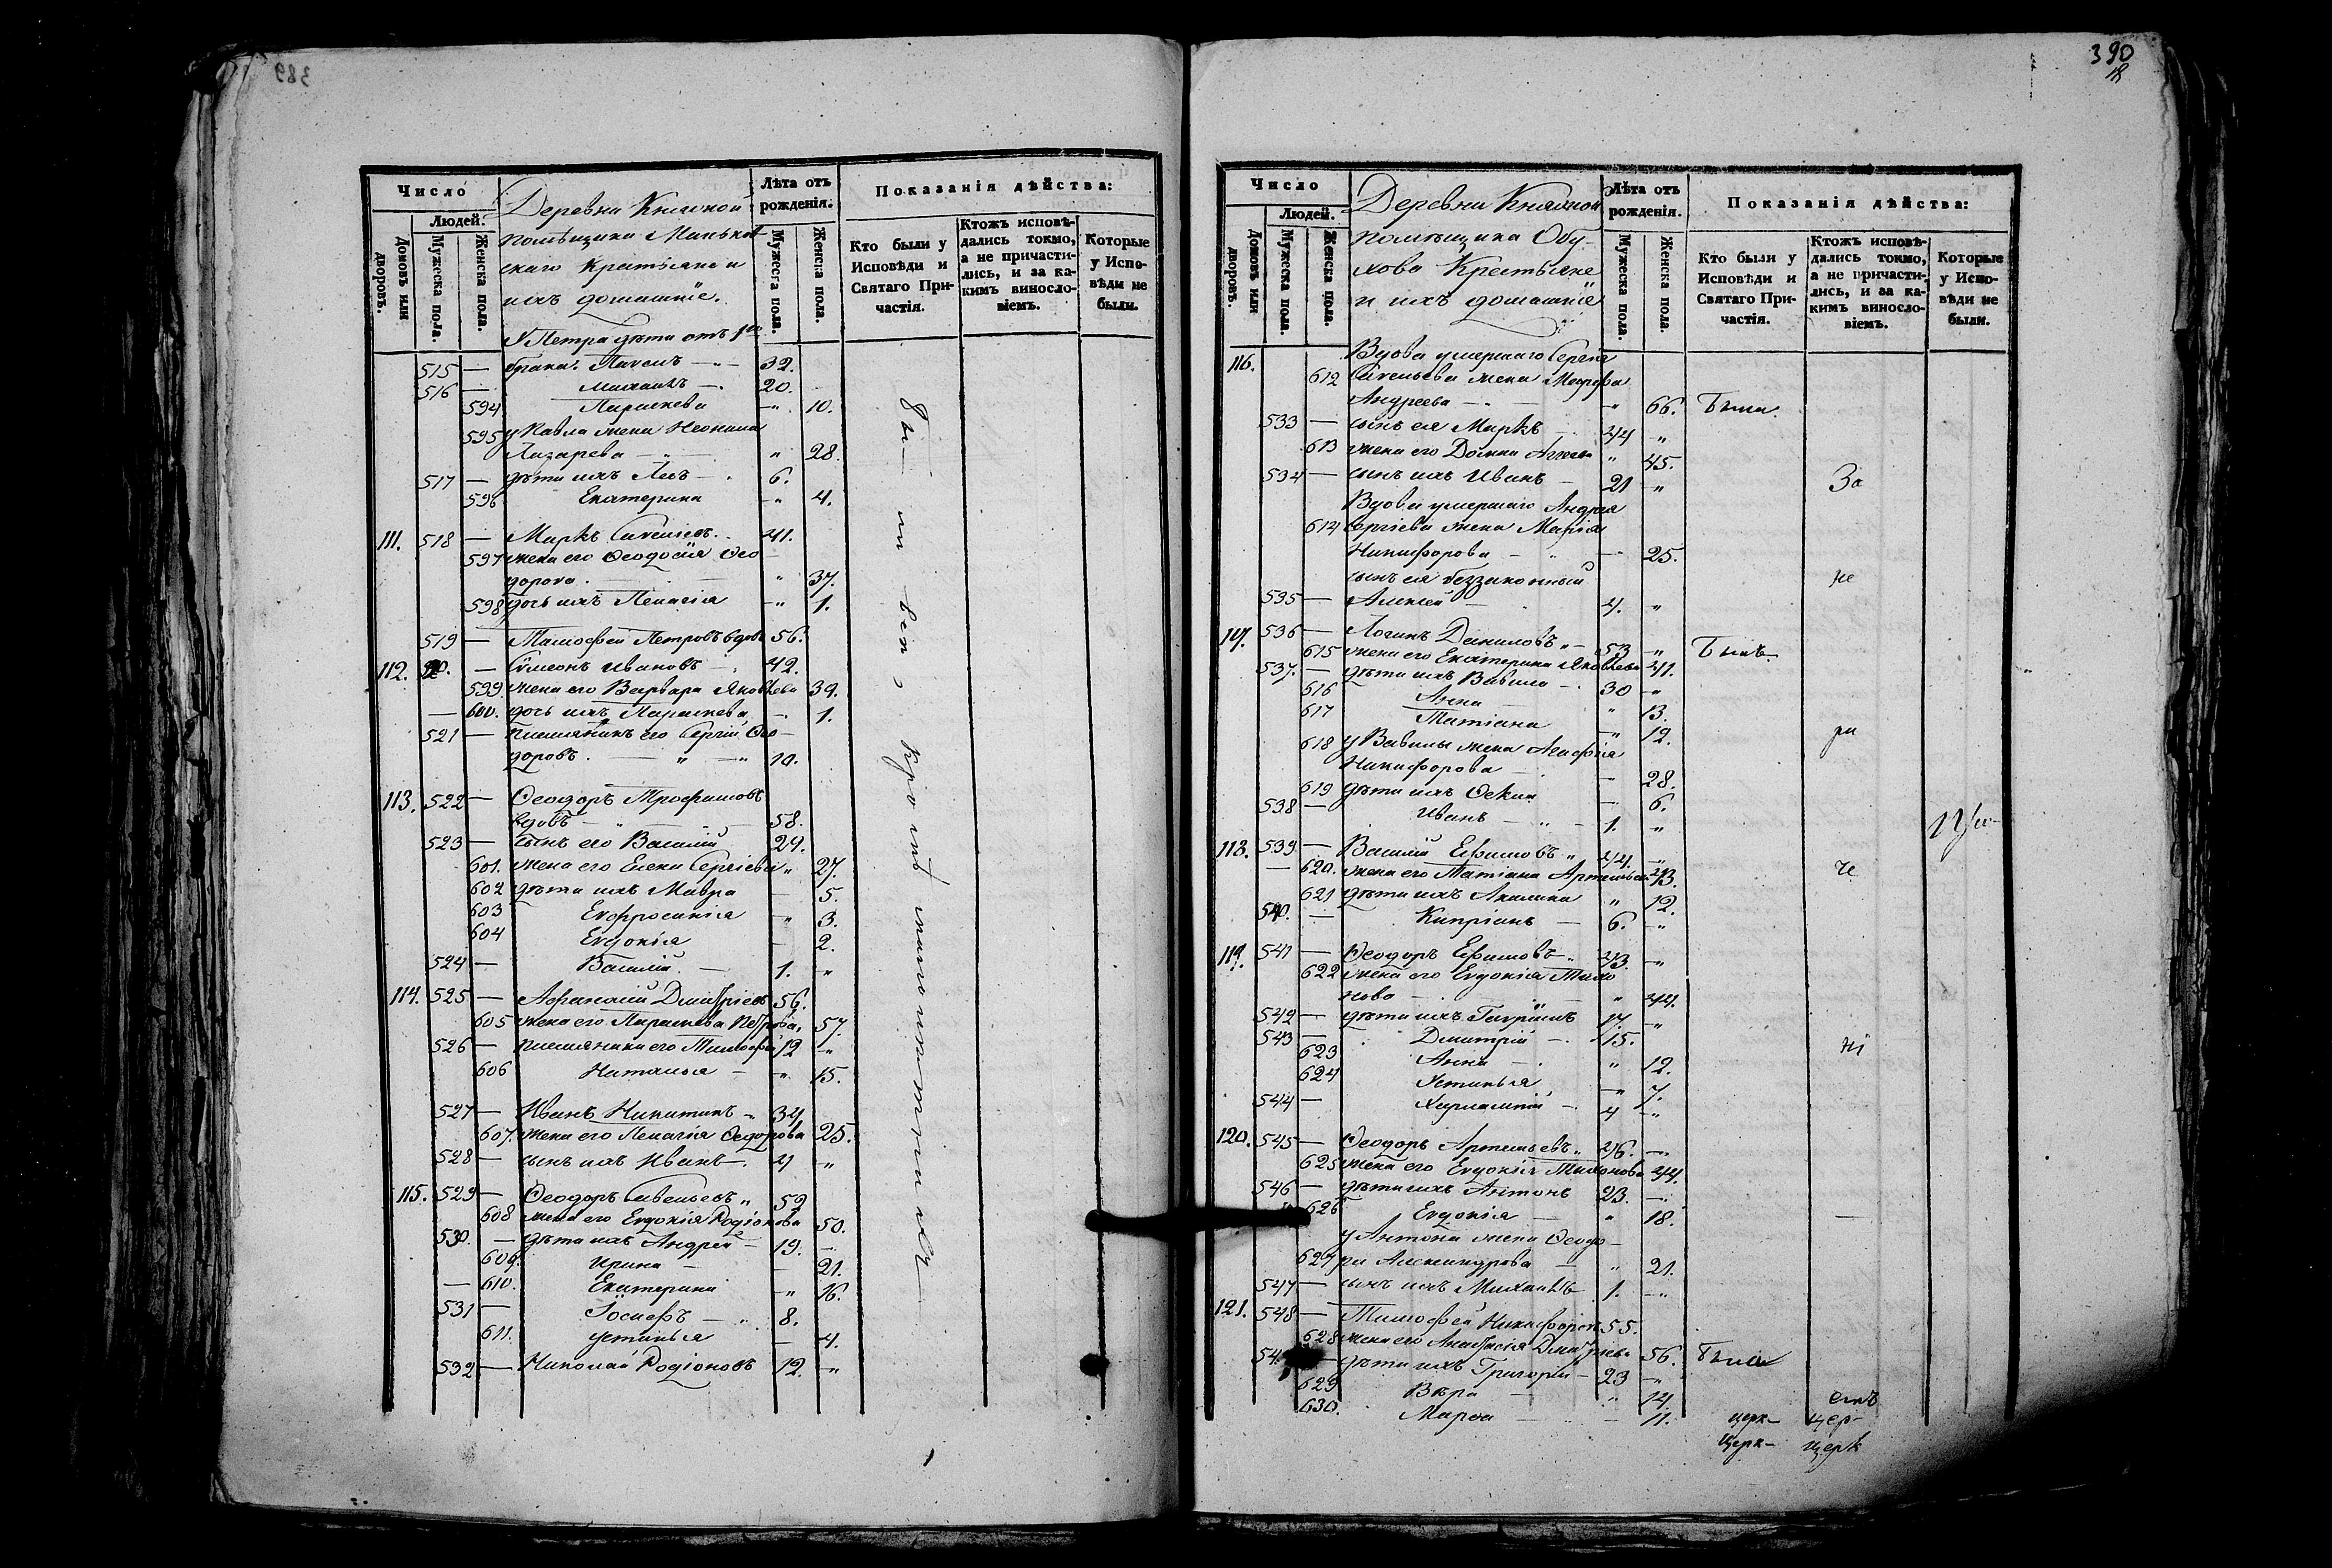 389
Число
Людей.
Домовъ или дворовъ.
Мужеска пола.
Женска пола.
Деревни Княжной
помѣщика Маньков
скаго Крестьяне и
ихъ домашніе.
Лѣта отъ рожденія.
Мужеска пола.
Женска пола.
Показанія дѣйства:
Кто были у Исповѣди и Святаго Причастія.
Ктожъ исповѣдались токмо, а не причастились, и за какимъ винословіемъ.
Которые у Исповѣди не были.
У Петра дѣти отъ 1го
515 — брака: Павелъ — 32.
516 — Михаилъ — 20.
594 Параскева — 10.
595 у Павла жена Неонила
Лазарева — " 28.
517 — дѣти ихъ Левъ — 6.
596 Екатерина — " 4.
111. 518 — Маркъ Савельевъ. 41.
597 жена его Ѳеодосія Ѳео
дорова. — " 37.
598 дочь ихъ Пелагія — " 1.
519 — Тимофей Петровъ вдовъ 56.
112. 20. — Сѵмеонъ Ивановъ — 42.
599. жена его Варвара Яковлева 39.
— 600. дочь ихъ Параскева — 1.
521 — племянникъ его Сергій Ѳео-
доровъ. — " — " 10.
113. 522 — Ѳеодоръ Трофимовъ
вдовъ — " — 58.
523 — сынъ его Василій 24.
601. жена его Елена Сергіева " 27.
602 дѣти ихъ Мавра — 5.
603 Евфросинія — " 3.
604 Евдокія — 2.
524 — Василій. — 1. — "
114. 525 — Афанасій Дмитріевъ 56.
605 жена его Параскева Петрова, 57.
526 — племянники его Тимофей 12 — "
606 Наталья — " 15.
527 — Иванъ Никитинъ " 34
607. жена его Пелагія Ѳедорова 25.
528 — сынъ ихъ Иванъ —. 4 — "
115. 529 — Ѳеодоръ Савельевъ " 52
608 жена его Евдокія Родіонова 50.
530. — дѣти ихъ Андрей — 19. —
609. Ирина — 21.
— 610. Екатерина — " 16.
531 — Іосифъ — " 8.
611. Устинья — 4.
532 — Николай Родіоновъ 12. — "
390
Число
Людей.
Домовъ или дворовъ.
Мужеска пола.
Женска пола.
Деревни Княжной
помѣщика Обу-
хова Крестьяне
и ихъ домашніе
Лѣта отъ рожденія.
Мужеска пола.
Женска пола.
Показанія дѣйства:
Кто были у Исповѣди и Святаго Причастія.
Ктожъ исповѣдались токмо, а не причастились, и за какимъ винословіемъ.
Которые у Исповѣди не были.
116. Вдова умершаго Сергія
612 Савельева жена Марфа
Андреева — " 66. Была.
533 — сынъ ея Маркъ — 44 "
613 жена его Домна " 45.
534 — сынъ ихъ Иванъ — 21 — " За
Вдова умершаго Андрея
614 Сергіева жена Марія
Никифорова — " — 25.
сынъ ея беззаконный не
535 — Алексей — 4. "
117. 536 — Логинъ Даниловъ " — 53 — " Былъ.
615 жена его Екатерина Яковлева 41.
537. — дѣти ихъ Вавила — 30 — "
616 Анна — " 13.
617 Татіана — " 12. ра
618 у Вавилы жена Агафія
Никифорова — 28.
619 дѣти ихъ Ѳекла — 6.
538 — Иванъ — " — 1. "
118. 539 — Василій Ефимовъ " 44. — "
— 620. жена его Татіана Артемьева 43. че
621 дѣти ихъ Акилина " 12.
540. — Кипріанъ — 6. — "
119. 541 — Ѳеодоръ Ефимовъ — " 43. — "
622 жена его Евдокія Тимо
нова — " 44.
542 — дѣти ихъ Гавріилъ 17. — "
543 — Дмитрій — 15. ні
623 Анна — " 12.
624 Устинья — " 7.
544 — Харлампій — 4 — "
120. 545 — Ѳеодоръ Артемьевъ " 46. — "
625 жена его Евдокія Тимонова 44.
546 — дѣти ихъ Антонъ 23. — "
626 Евдокія — " 18. —
у Антона жена Ѳеодо-
627 ра Александрова — " 21.
547 — сынъ ихъ Михаилъ 1. — "
121. 548 — Тимофей Никифоровъ 55.
628 жена его Анастасія Дмитріева 56. Была
54 — дѣти ихъ Григорій — 23 — "
629 Вѣра — " 14. емъ
630. Марѳа — — 11.
церк— цер-
Церк— церк